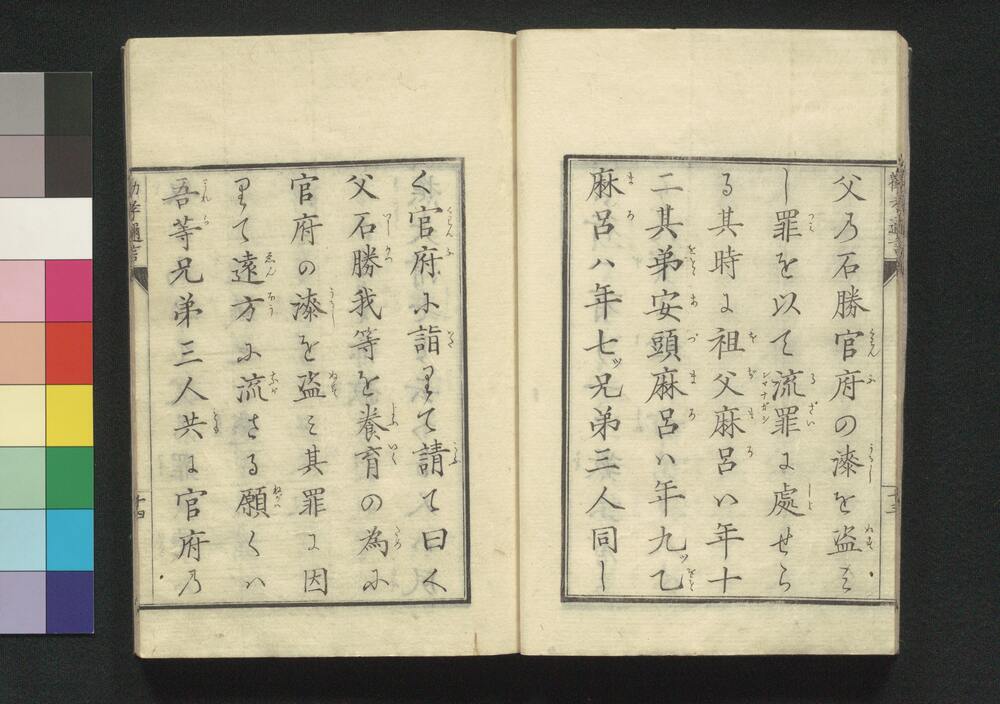 父乃石勝官府の漆を盗ミ
し罪を以て流罪に處せら
る其時に祖父麻呂ハ年十
二其弟安頭麻呂ハ年九ッ乙
麻呂ハ年七ッ兄弟三人同し
く官府に詣りて請て曰く
父石勝我等を養育の為に
官府の漆を盗ミ其罪に因
りて遠方に流さる願くハ
吾等兄弟三人共に官府乃
十四